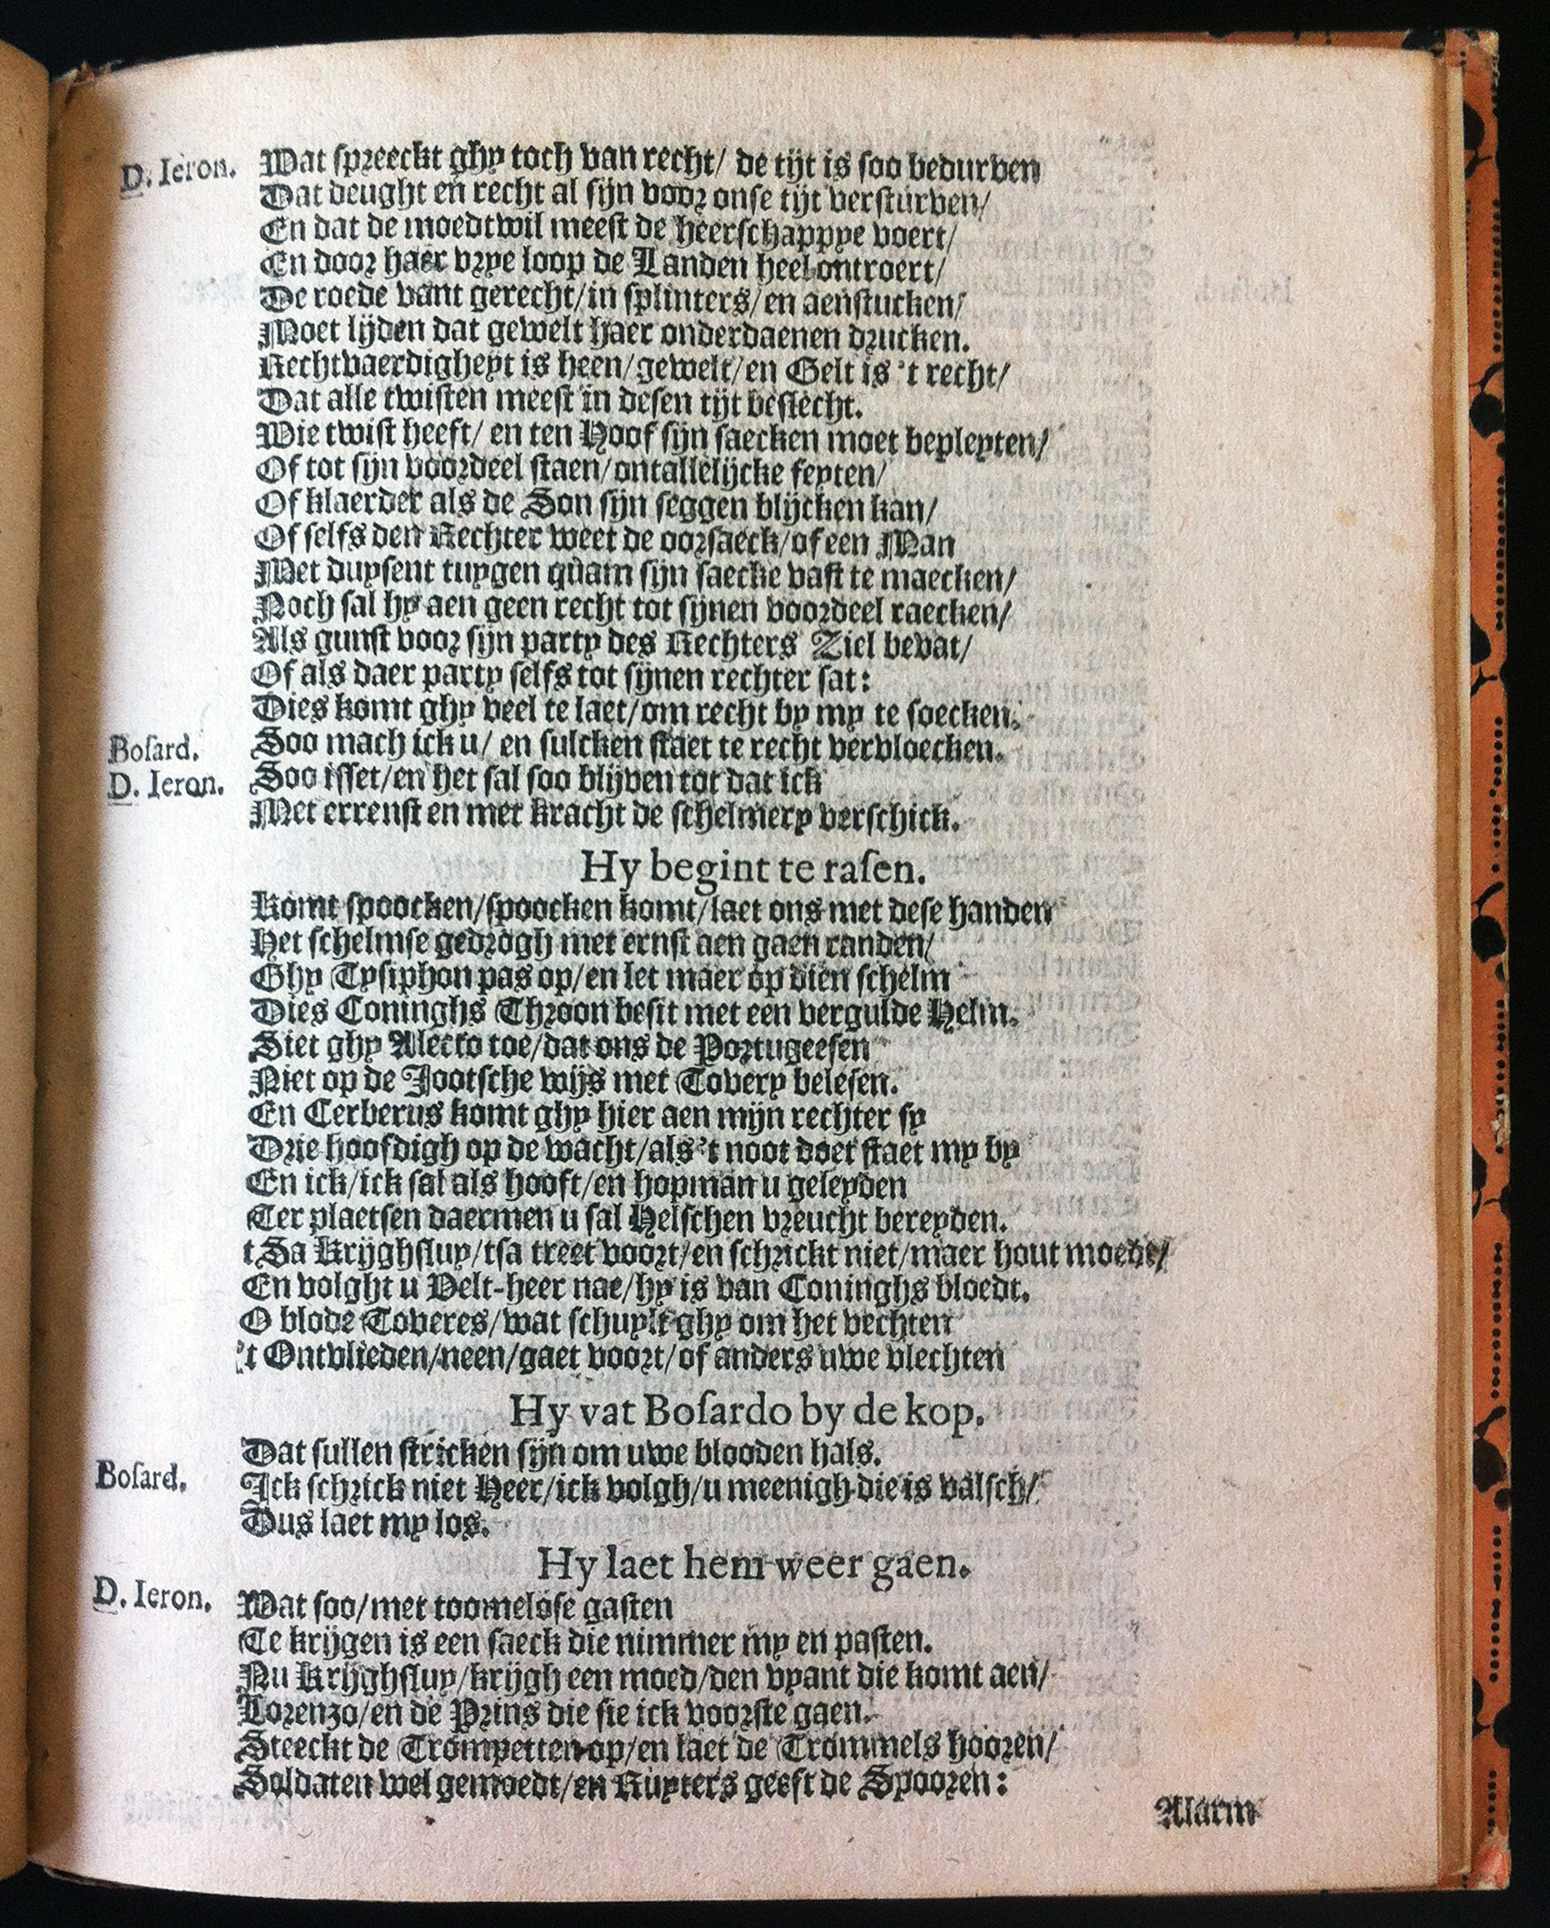 D. Ieron. Wat spreeckt ghy toch van recht/ de tijt is soo bedurven
Dat deught en recht al sijn voor onse tijt versturven/
En dat de moedtwil meest de heerschappye voert/
En door haer vrye loop de Landen heel ontroert/
De roede vant gerecht/in splinters/en aenstucken/
Moet lijden dat gewelt haer onderdaenen drucken.
Rechtvaerdigheyt is heen/gewelt/en Gelt is 't recht/
Dat alle twisten meest in desen tijt beslecht.
Wie twist heeft/ en ten Hoof sijn saecken moet bepleyten/
Of tot sijn voordeel staen/ontallelijcke feyten/
Of klaerder als de Son sijn seggen blijcken kan/
Of selfs den Rechter weet de oorsaeck/of een Man
Met duysent tuygen quam sijn saecke vast te maecken/
Noch sal hy aen geen recht tot sijnen voordeel raecken/
Als gunst voor sijn party des Rechters Ziel bevat/
Of als daer party selfs tot sijnen rechter sat:
Dies komt ghy veel te laet/om recht by my te soecken.
Bosard. Soo mach ick u/ en sulcken staet te recht vervloecken.
D. Ieron. Soo isset/en het sal soo blijven tot dat ick
Met errenst en met kracht de schelmery verschick.
Hy begint te rasen.
Komt spoocken/spoocken komt/laet ons met dese handen
Het schelmse gedrogh met ernst aen gaen randen/
Ghy Tysiphon pas op/en let maer op dien schelm
Dies Coninghs Throon besit met een vergulde Helm.
Siet ghy Alecto toe/dat ons de Portugeesen
Niet op de Jootsche wijs met Tovery belesen.
En Cerberus komt ghy hier aen mijn rechter sy
Drie hoofdigh op de wacht/als 't noot doet staet my by
En ick/ick sal als hooft/en hopman u geleyden
Ter plaetsen daermen u sal Helschen vreucht bereyden.
tSa Krijghsluy/tsa treet voort/en schrickt niet/maer hout moede/
En volght u Velt-heer nae/hy is van Coninghs bloedt.
O blode Toveres/wat schuylt ghy om het vechten
't Ontvlieden/neen/gaet voort/of anders uwe vlechten
Hy vat Bosardo by de kop.
Dat sullen stricken sijn om uwe blooden hals.
Bosard. Ick schrick niet Heer/ick volgh/u meenigh die is valsch/
Dus laet my los.
Hy laet hem weer gaen.
D. Ieron. Wat soo/met toomelose gasten
Te krijgen is een saeck die nimmer my en pasten.
Nu Krijghsluy/krijgh een moed/den vyant die komt aen/
Lorenzo/en de Prins die sie ick voorste gaen.
Steeckt de Trompetten op/en laet de Trommels hooren/
Soldaten wel gemoedt/en Ruyters geeft de Spooren:
Alarm